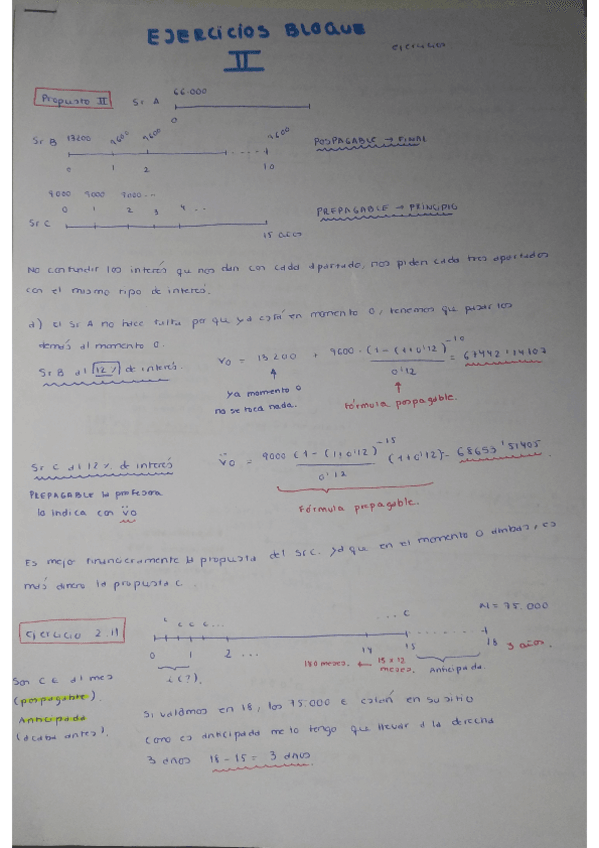 EJERCICIOS BLOQUE
II
ejercicios
Propuesto II
Sr A
66.000
0
Sr B
13200 9600 9600 9600
0 1 2 10
POSPAGABLE → FINAL
9000 9000 9000...
0 1 2 3 4 ..
Sr C
15 años
PREPAGABLE → PRINCIPIO
No confundir los interés que nos dan con cada apartado, nos piden cada tres apartados
con el mismo tipo de interés.
a) El Sr A no hace falta por que ya está en momento 0, tenemos que pasar los
demás al momento 0.
Sr B al 12% de interés.
V0 = 13200 + 9600 · (1 - (1+0'12)^-10 / 0'12 = 67442'14107
ya momento 0
no se toca nada.
Fórmula pospagable.
Sr C al 12% de interés
V̈0 = 9000 (1 - (1+0'12)^-15 / 0'12 (1+0'12) = 68653'51405
PREPAGABLE la profesora
la indica con v̈0
Fórmula prepagable.
Es mejor financieramente la propuesta del Sr C. ya que en el momento 0 ambas, es
más dinero la propuesta C.
Ejercicio 2.11
c c c c... ... c
N = 75.000
0 1 2 ... 14 15 18
3 años.
i (?).
180 meses. ← 15 x 12
meses.
Anticipada
Son C € al mes
(pospagable).
Anticipada
(acaba antes).
Si valoamos en 18, los 75.000 € están en su sitio
como es anticipada me lo tengo que llevar a la derecha
3 años 18 - 15 = 3 años